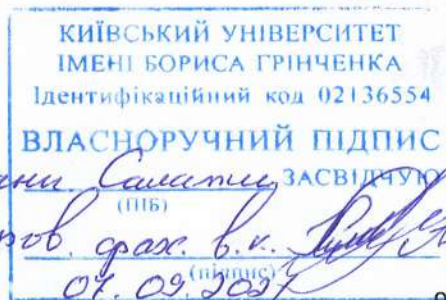 КИЇВСЬКИЙ УНІВЕРСИТЕТ
ІМЕНІ БОРИСА ГРІНЧЕНКА
Ідентифікаційний код 02136554
ВЛАСНОРУЧНИЙ ПІДПИС
ЗАСВІДЧУЮ
(ПІБ)
фах. в.к.
(підпис)